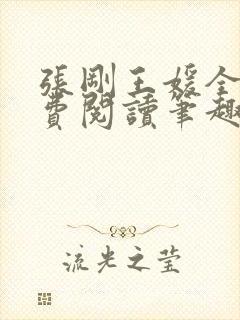 張剛王媛全
費閱讀筆趣
流光之莹